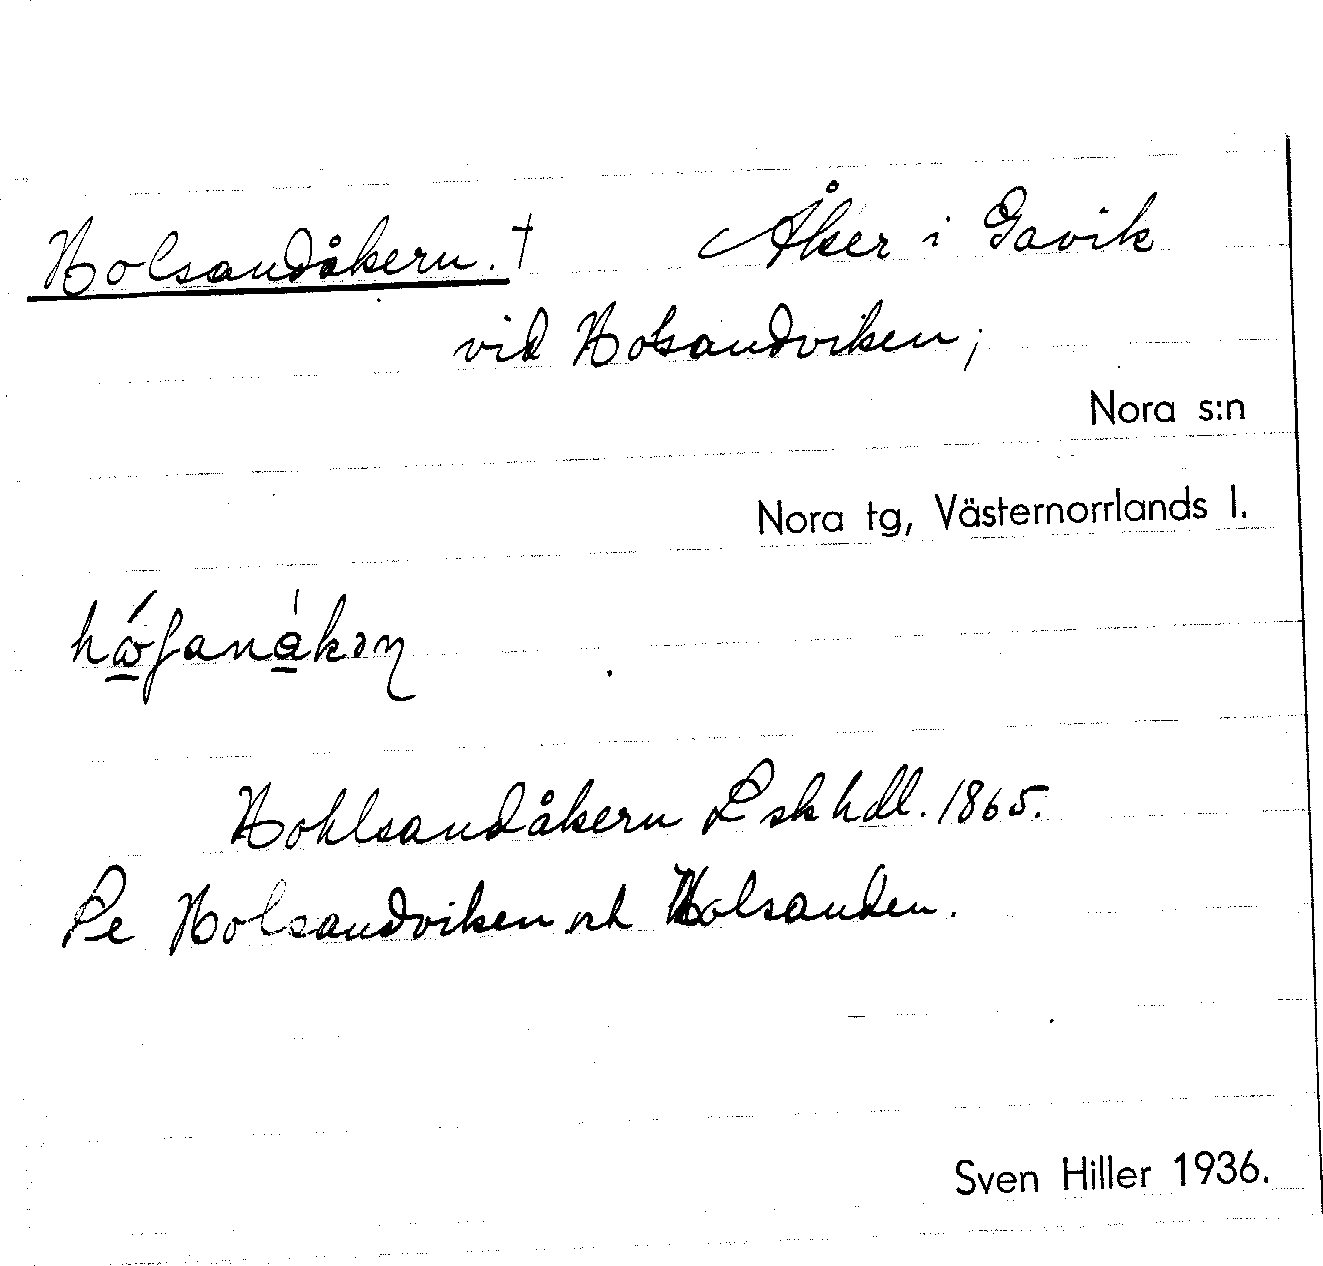 Holsandåkern. † Åker i Gavik
vid Holsandviken;
Nora s:n
Nora tg, Västernorrlands l.
Hohlsandåkern L sk hdl. 1865.
Se Holsandviken och Holsanden.
Sven Hiller 1936.